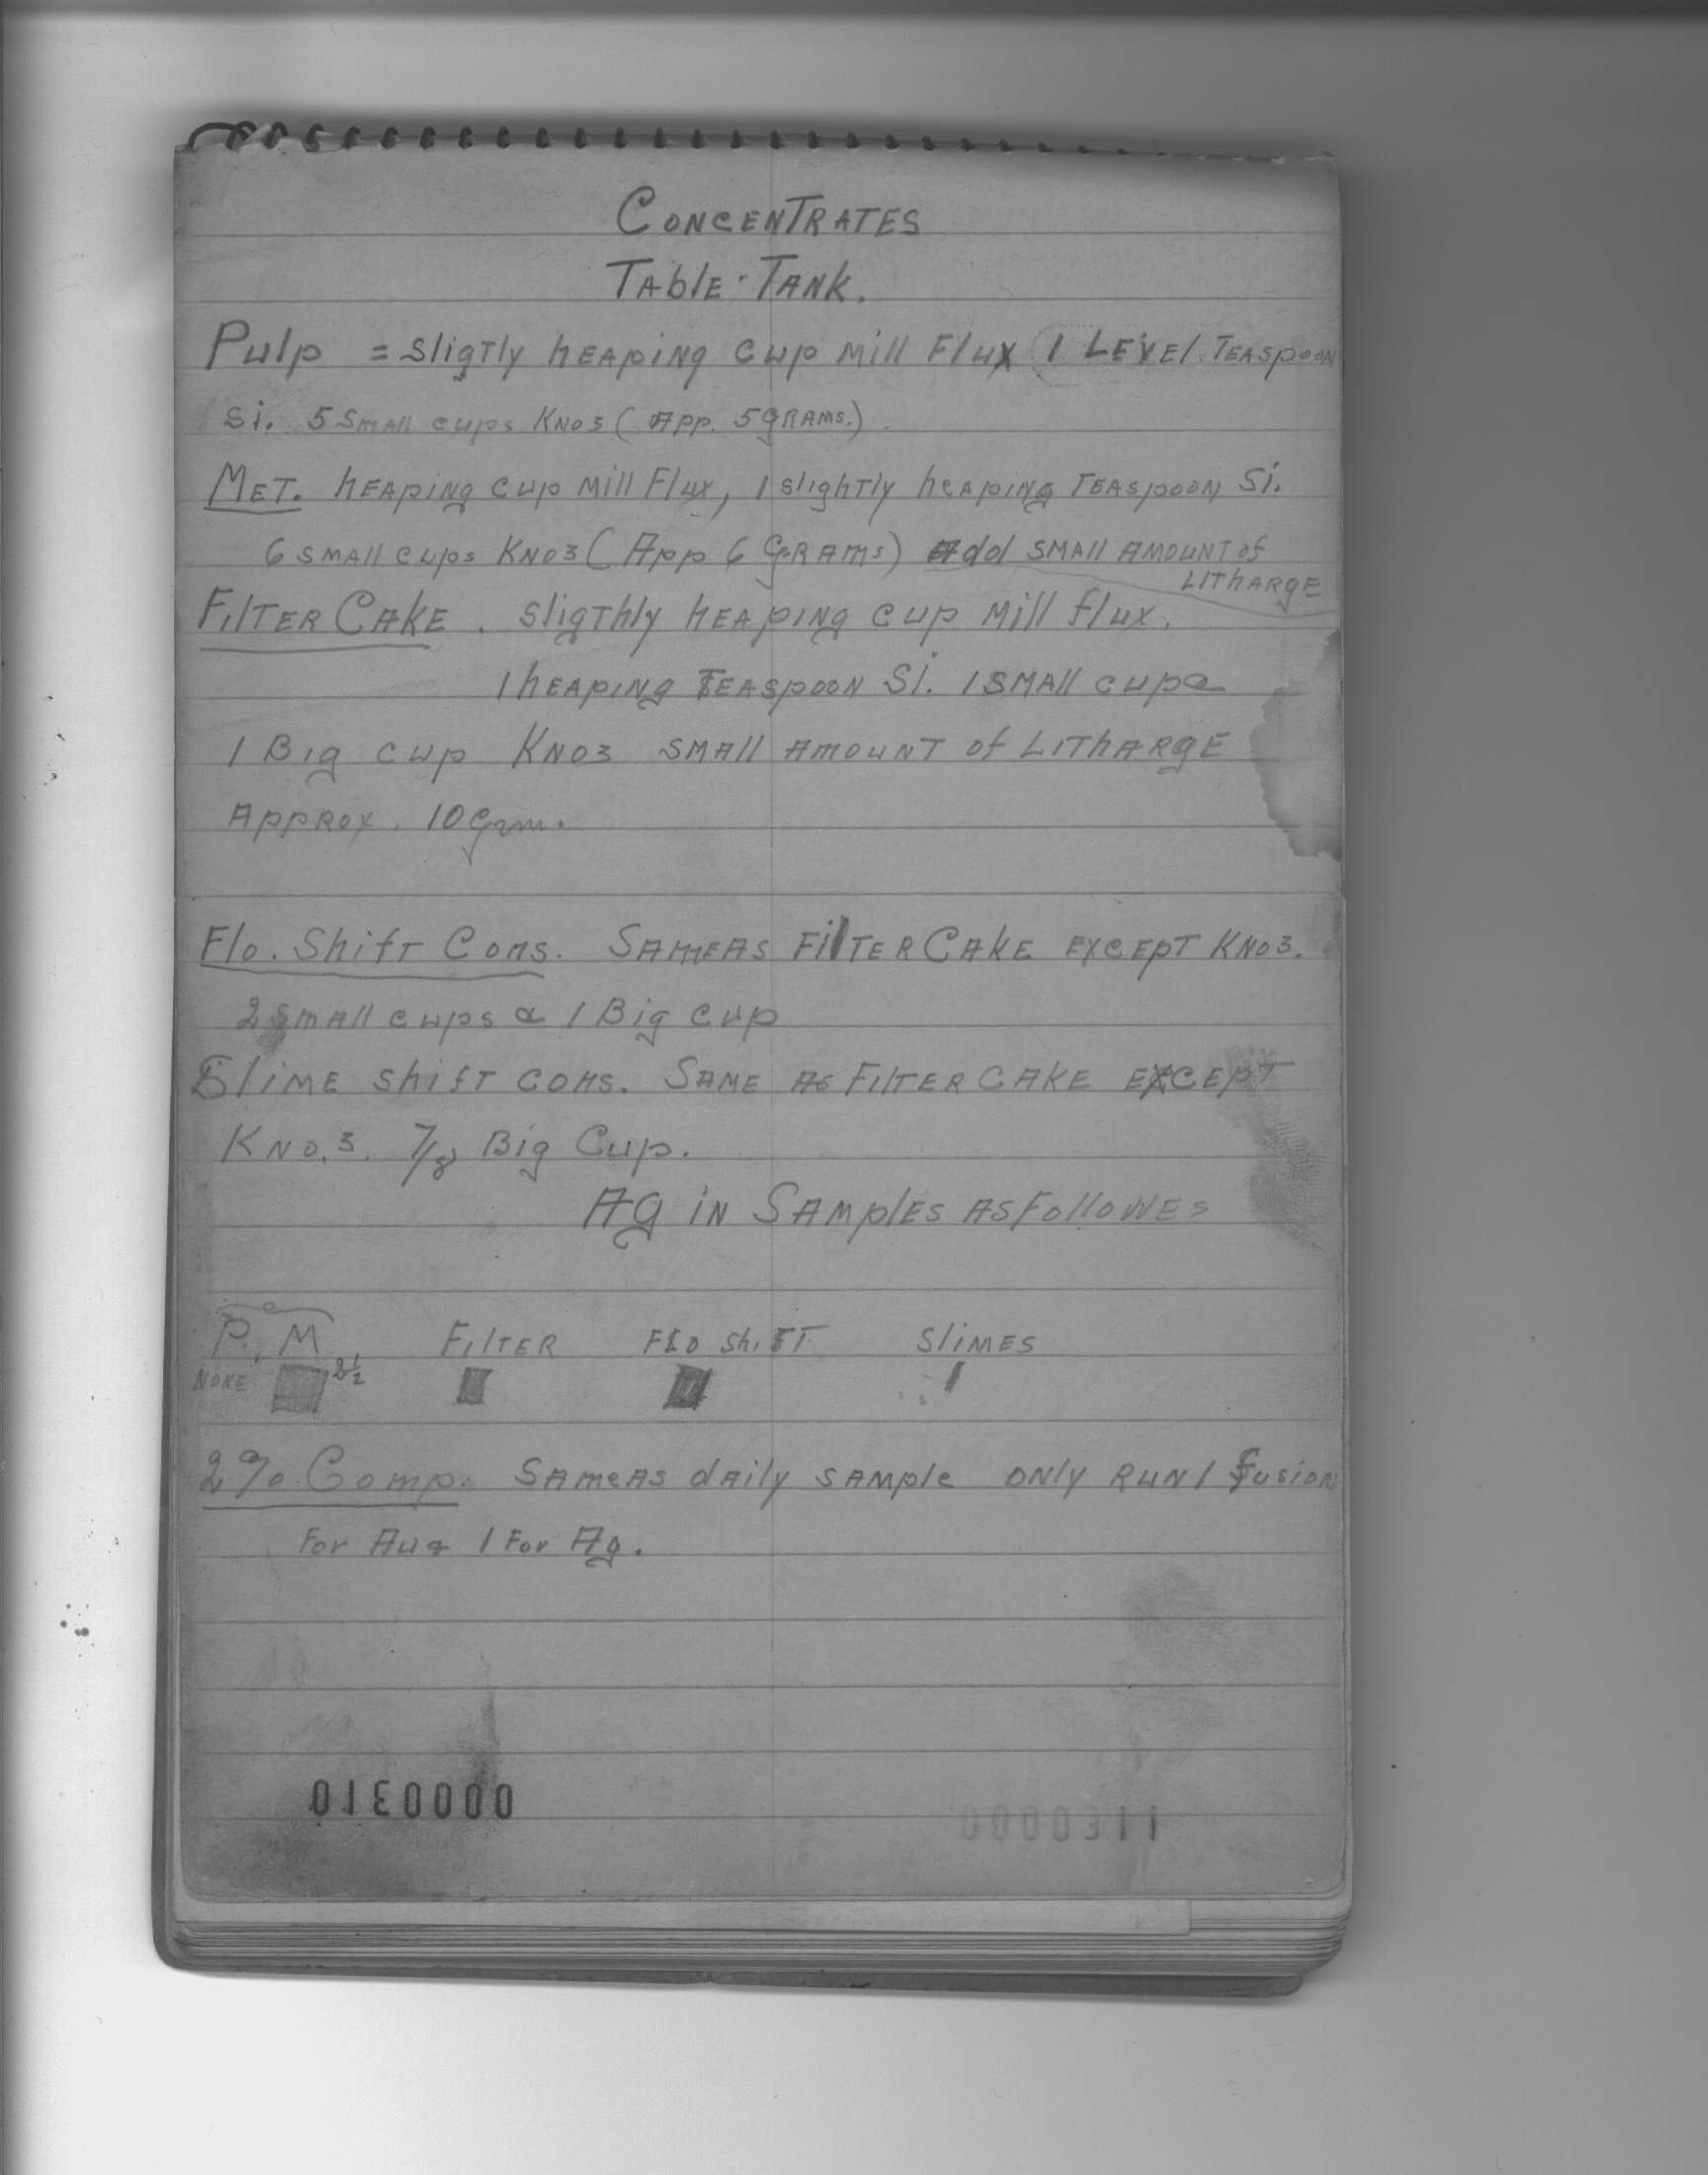 CONCENTRATES
TABLE·TANK.
Pulp = Sligtly hEAping cup Mill Flux (1 LEVEl TEASpooN
Si. 5 SMAll cups KNO3 (App. 5 gRAMS.)
MET. hEAping cup Mill Flux, 1 slighTly hEApiNg TEASpooN Si.
6 SMAll cups KNO3 (App 6 GRAMS) Add SMAll AMOUNT of
LITHARgE
FilTER CAkE. SligThly hEApiNg cup Mill flux.
1 hEApiNg TEASpooN Si. 1 SMAll cup &
1 Big cup KNO3 SMAll AMOUNT of LITHARgE
APPROX. 10 Grm.
Flo. ShifT CoNs. SAMEAS FilTER CAkE EXCEpT KNO3.
2 SMAll cups & 1 Big cup
SliME ShifT CONS. SAME AS FilTER CAkE EXCEpT
KNO.3. 7/8 Big Cup.
Ag iN SAMplES AS FolloWES
P. M FilTER FLO ShiFT SliMES
NONE 2½
2% Comp. SAMEAS dAily SAMplE ONly RUN 1 fusioN
For Au & 1 For Ag.
0000310